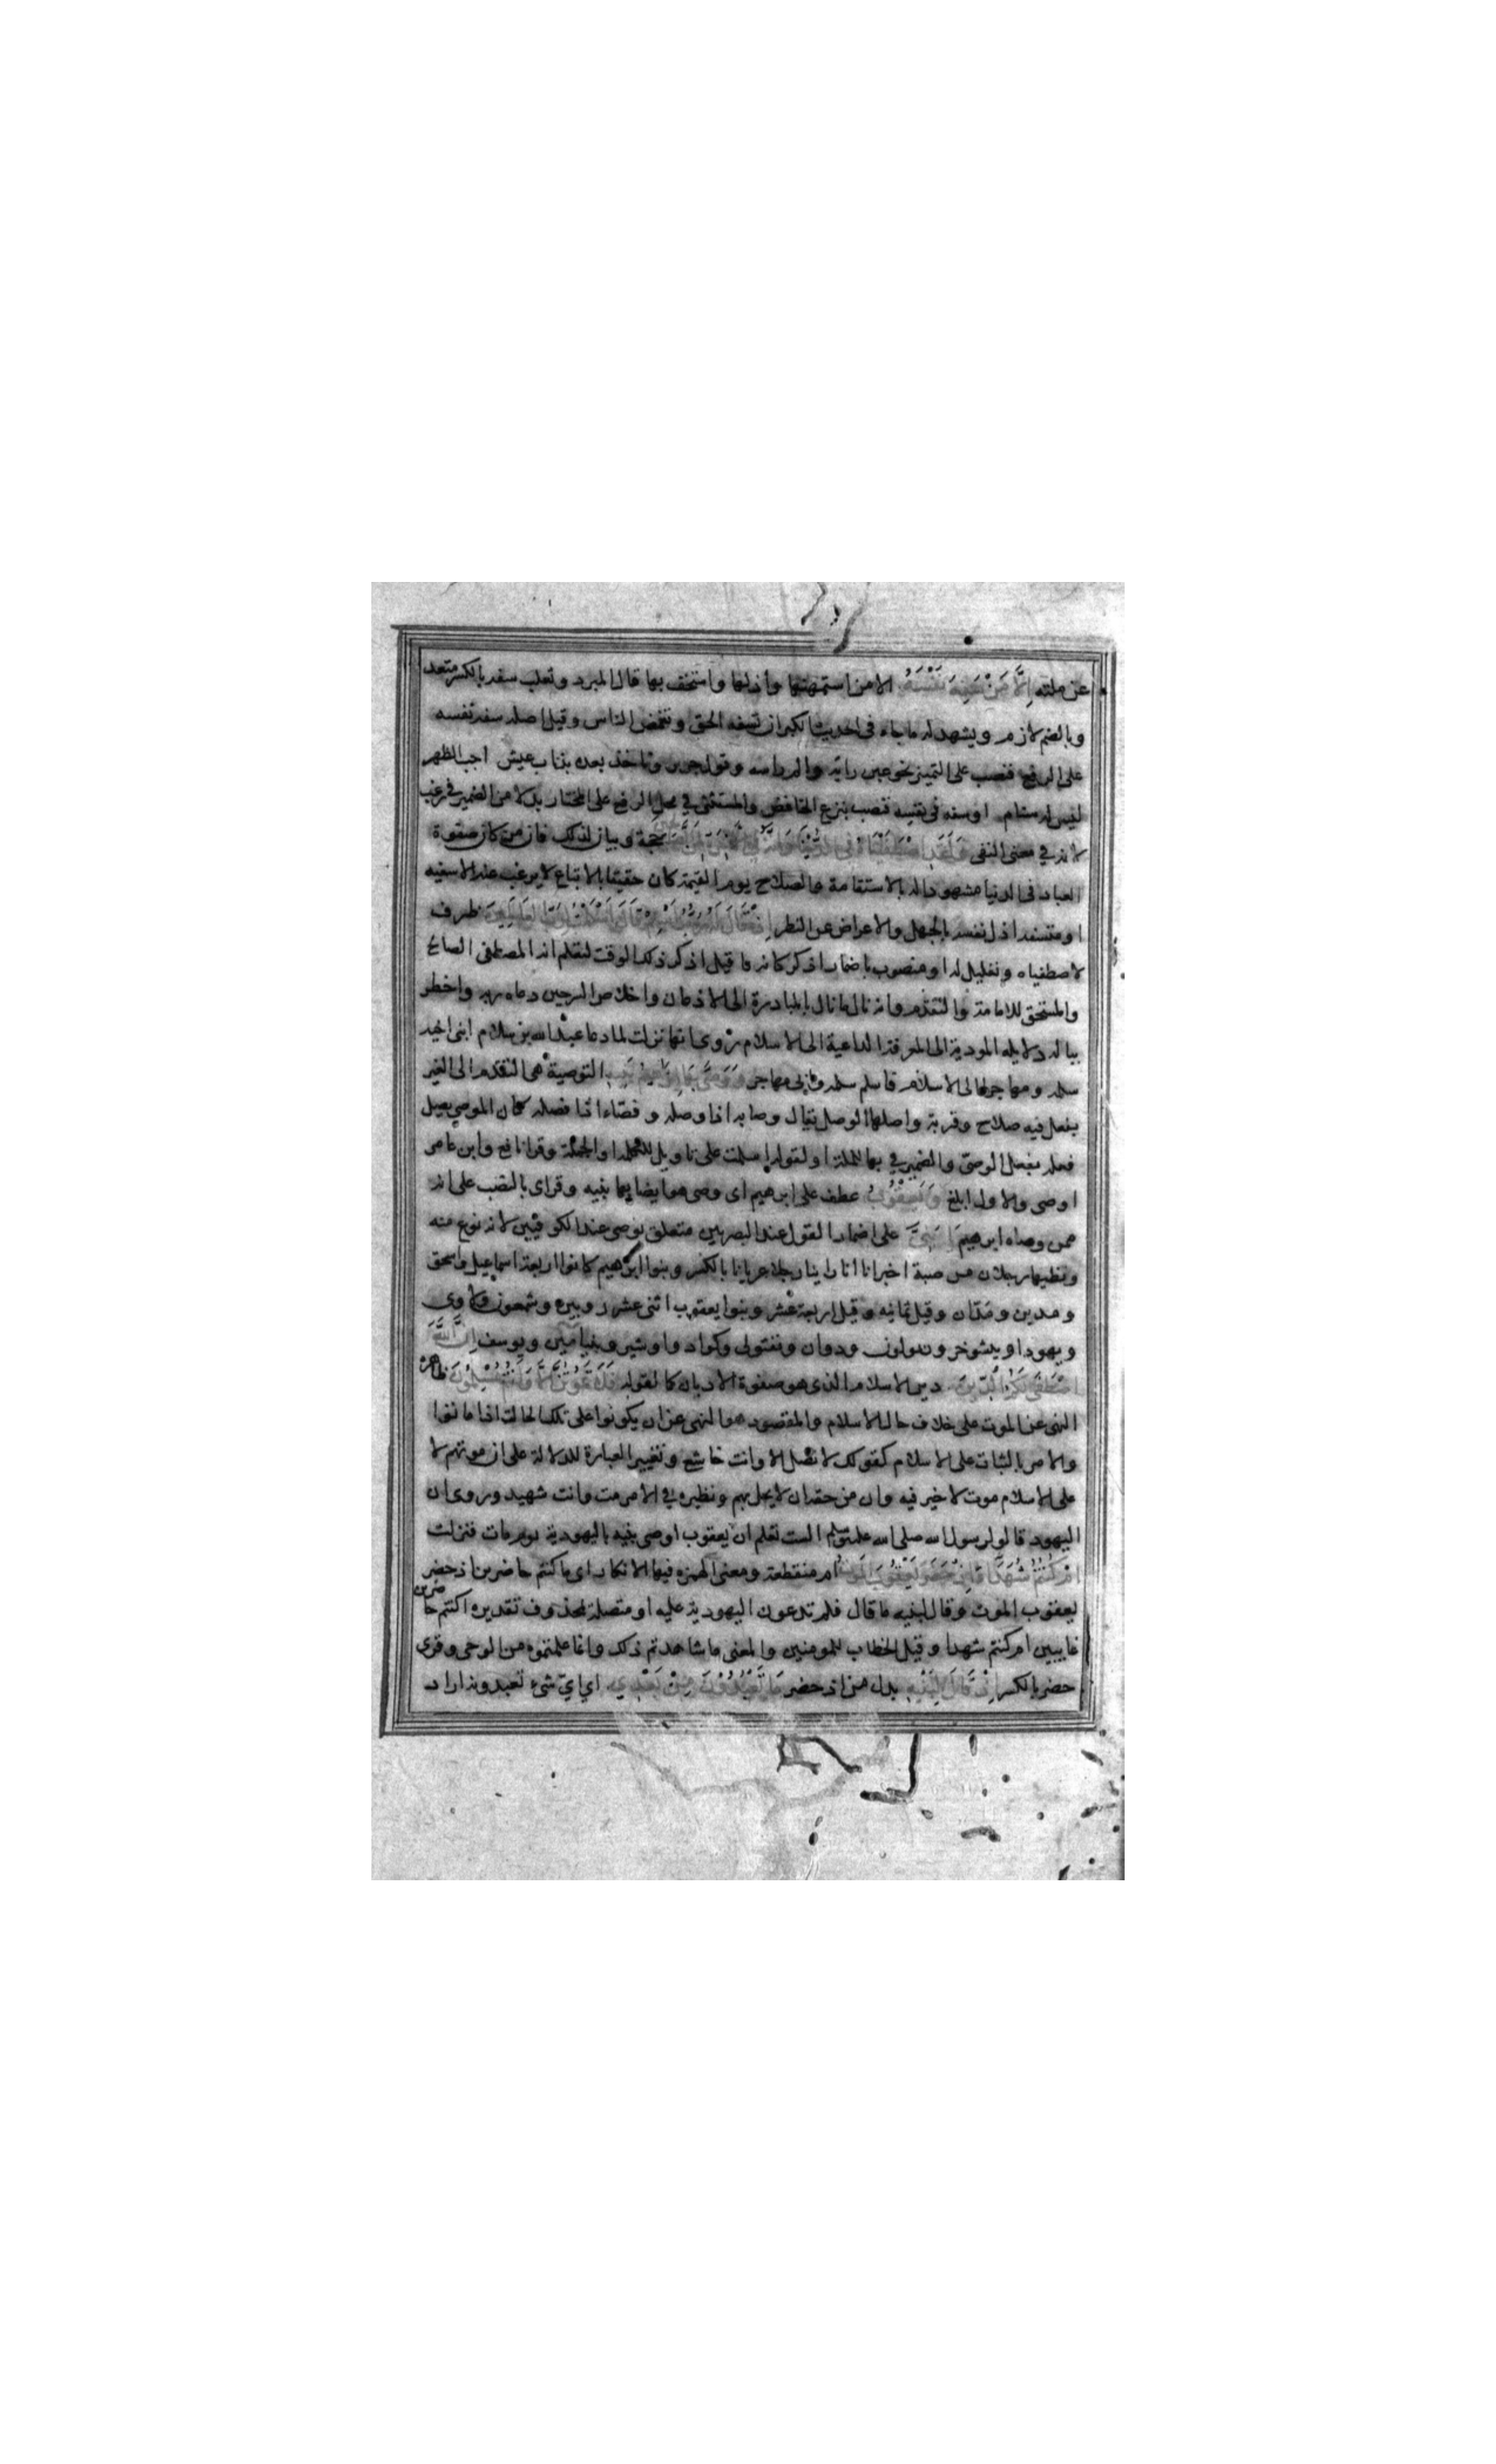 عن ملته إِلَّا مَنْ سَفِهَ نَفْسَهُ الا من استمهنها واذلها واستخف بها قال المبرد وثعلب سفه بالكسر متعد
وبالضم لازم ويشهد له ما جاء فى الحديث الكبر ان تسفه الحق وتغمض الناس وقيل اصله سفه نفسه
على الرفع فنصب على التمييز نحو غبن رايه والم راسه وقول جرير وناخذ بعده بذناب عيش اجب الظهر
ليس له سنام او سفه فى نفسه فنصب بنزع الخافض والمستثنى في محل الرفع على المختار بدلا من الضمير في يرغب
لانه في معنى النفى وَلَقَدِ اصْطَفَيْنَاهُ فِى الدُّنْيَا وَاِنَّهُ فِى الْآخِرَةِ لَمِنَ الصَّالِحِينَ حجة وبيان لذلك فان من كان صفوة
العباد فى الدنيا مشهودا له بالاستقامة والصلاح يوم القيمة كان حقيقا بالاتباع لا يرغب عنه الا سفيه
او متسفه اذل نفسه بالجهل والاعراض عن النظر اِذْ قَالَ لَهُ رَبُّهُ اَسْلِمْ قَالَ اَسْلَمْتُ لِرَبِّ الْعَالَمِينَ ظرف
لاصطفيناه وتعليل له او منصوب باضمار اذكر كانه ما قيل اذكر ذلك الوقت لتعلم انه المصطفى الصالح
والمستحق للامامة والتقدم وانه نال ما نال بالمبادرة الى الاذعان واخلاص السر حين دعاه ربه واخطر
بباله دلايله المودية الى المعرفة الداعية الى الاسلام روى انها نزلت لما دعا عبد الله بن سلام ابنى اخيه
سلمه ومهاجرا الى الاسلام فاسلم سلمه وابى مهاجر وَوَصَّى بِهَا اِبْرَاهِيمُ بَنِيهِ التوصية هى التقدم الى الغير
بفعل فيه صلاح وقربة واصلها الوصل يقال وصاه اذا وصله وفصاه اذا فصله كان الموصي يصل
فعله بفعل الوصى والضمير في بها للملة او لقوله اسلمت على تاويل الكلمة او الجملة وقرا نافع وابن عامر
اوصى والاول ابلغ وَيَعْقُوبُ عطف على ابرهيم اى وصى هو ايضا بها بنيه وقرئ بالنصب على انه
ممن وصاه ابرهيم يَا بَنِيَّ على اضمار القول عند البصريين متعلق بوصى عند الكوفيين لانه نوع منه
ونظيره رجلان من ضبة اخبرانا انا راينا رجلا عريانا بالكسر وبنوا ابرهيم كانوا اربعة اسماعيل واسحق
ومدين ومدان وقيل ثمانيه وقيل اربعة عشر وبنوا يعقوب اثنى عشر روبيره وشمعون ولاوى
ويهودا ويشوخر وزبولون ودوان ونفتولى وكواد واوشير وبنيامين ويوسف اِنَّ اللّٰهَ
اصْطَفَى لَكُمُ الدِّينَ دين الاسلام الذى هو صفوة الاديان كما لقوله فَلَا تَمُوتُنَّ اِلَّا وَاَنْتُمْ مُسْلِمُونَ ظاهره
النهى عن الموت على خلاف حال الاسلام والمقصود هو النهى عن ان يكونوا على تلك الحالة اذا ماتوا
والامر بالثبات على الاسلام كقولك لا تصل الا وانت خاشع وتغيير العبارة للدلالة على ان موتهم لا
على الاسلام موت لا خير فيه وان من حقه ان لا يحل بهم ونظيره في الامر مت وانت شهيد وروى ان
اليهود قالوا لرسول الله صلى الله عليه وسلم الست تعلم ان يعقوب اوصى بنيه باليهودية يوم مات فنزلت
اَمْ كُنْتُمْ شُهَدَاءَ اِذْ حَضَرَ يَعْقُوبَ الْمَوْتُ ام منقطعة ومعنى الهمزه فيها الانكار اى ما كنتم حاضرين اذ حضر
يعقوب الموت وقال لبنيه ما قال فلم تدعون اليهودية عليه او متصلة بمحذوف تقديره اكنتم حاضرين
غايبين ام كنتم شهدا وقيل الخطاب للمومنين والمعنى ما شاهدتم ذلك وانما علمتموه من الوحى وقرى
حضر بالكسر اِذْ قَالَ لِبَنِيهِ بدل من اذ حضر مَا تَعْبُدُونَ مِنْ بَعْدِي اي اي شئ تعبدونه اراد